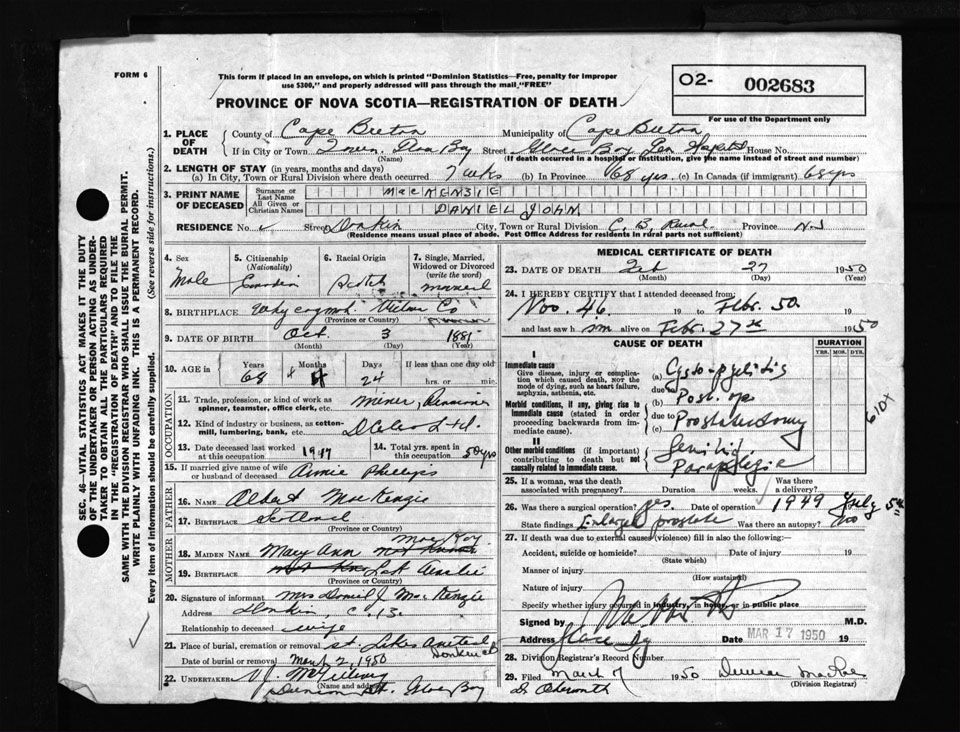 FORM 6
This form if placed in an envelope, on which is printed "Dominion Statistics—Free, penalty for improper
use $300," and properly addressed will pass through the mail, "FREE"
O2- 002683
For use of the Department only
PROVINCE OF NOVA SCOTIA—REGISTRATION OF DEATH
1. PLACE OF DEATH County of Cape Breton Municipality of Cape Breton
If in City or Town Town Street Glace Bay Gen Hospital House No.
(Name) (If death occurred in a hospital or institution, give the name instead of street and number)
2. LENGTH OF STAY (in years, months and days)
(a) In City, Town or Rural Division where death occurred 7 wks (b) In Province 68 yrs. (c) In Canada (if immigrant) 68 yrs
3. PRINT NAME OF DECEASED Surname or Last Name MacKENZIE
All Given or Christian Names DANIEL JOHN
RESIDENCE No. Street Donkin City, Town or Rural Division C. B. Rural Province N.S
(Residence means usual place of abode. Post Office Address for residents in rural parts not sufficient)
4. Sex Male
5. Citizenship (Nationality) Canadian
6. Racial Origin Scotch
7. Single, Married, Widowed or Divorced (write the word) married
8. BIRTHPLACE Co
(Province or Country)
9. DATE OF BIRTH Oct. 3 1881
(Month) (Day) (Year)
10. AGE in Years 68 Months 4 Days 24 If less than one day old hrs. or min.
OCCUPATION
11. Trade, profession, or kind of work as spinner, teamster, office clerk, etc. Miner, Pensioner
12. Kind of industry or business, as cotton-mill, lumbering, bank, etc.
13. Date deceased last worked at this occupation 1947
14. Total yrs. spent in this occupation 50 yrs
15. If married give name of wife or husband of deceased Annie Phillips
FATHER
16. Name Albert MacKenzie
17. Birthplace Scotland
(Province or Country)
MOTHER
18. MAIDEN NAME Mary Ann MacKay
19. BIRTHPLACE Ainslie
(Province or Country)
20. Signature of informant Mrs Daniel J MacKenzie
Address Donkin, C. B.
Relationship to deceased wife
21. Place of burial, cremation or removal St. Lukes
Date of burial or removal March 2, 1950
22. UNDERTAKER V.J. McGillivray
(Name and address) St. Glace Bay
MEDICAL CERTIFICATE OF DEATH
23. DATE OF DEATH Feb 27 1950
(Month) (Day) (Year)
24. I HEREBY CERTIFY that I attended deceased from:
Nov. 46. 19 to Febr. 50
and last saw h im alive on Febr. 27th 1950
CAUSE OF DEATH DURATION
YRS. MOS. DYS.
I
Immediate cause
Give disease, injury or complication which caused death, not the mode of dying, such as heart failure, asphyxia, asthenia, etc.
(a) Cysto-pyelitis
due to
Morbid conditions, if any, giving rise to immediate cause (stated in order proceeding backwards from immediate cause).
(b) Post. op
due to
(c) Prostatectomy
610X
II
Other morbid conditions (if important) contributing to death but not causally related to immediate cause.
Paraplegia
25. If a woman, was the death associated with pregnancy? Duration weeks Was there a delivery?
26. Was there a surgical operation? yes. Date of operation 1949 July 5th
State findings Enlarged prostate Was there an autopsy? no
27. If death was due to external causes (violence) fill in also the following:—
Accident, suicide or homicide? Date of injury 19
(State which)
Manner of injury
(How sustained)
Nature of injury
Specify whether injury occurred in industry, in home, or in public place
Signed by M.D.
Address Glace Bay Date MAR 17 1950 19
28. Division Registrar's Record Number
29. Filed March 7 1950
(Division Registrar)
SEC. 46—VITAL STATISTICS ACT MAKES IT THE DUTY
OF THE UNDERTAKER OR PERSON ACTING AS UNDER-
TAKER TO OBTAIN ALL THE PARTICULARS REQUIRED
IN THE "REGISTRATION OF DEATH" AND TO FILE THE
SAME WITH THE DIVISION REGISTRAR WHO SHALL ISSUE THE BURIAL PERMIT.
WRITE PLAINLY WITH UNFADING INK. THIS IS A PERMANENT RECORD.
Every item of information should be carefully supplied. (See reverse side for instructions.)